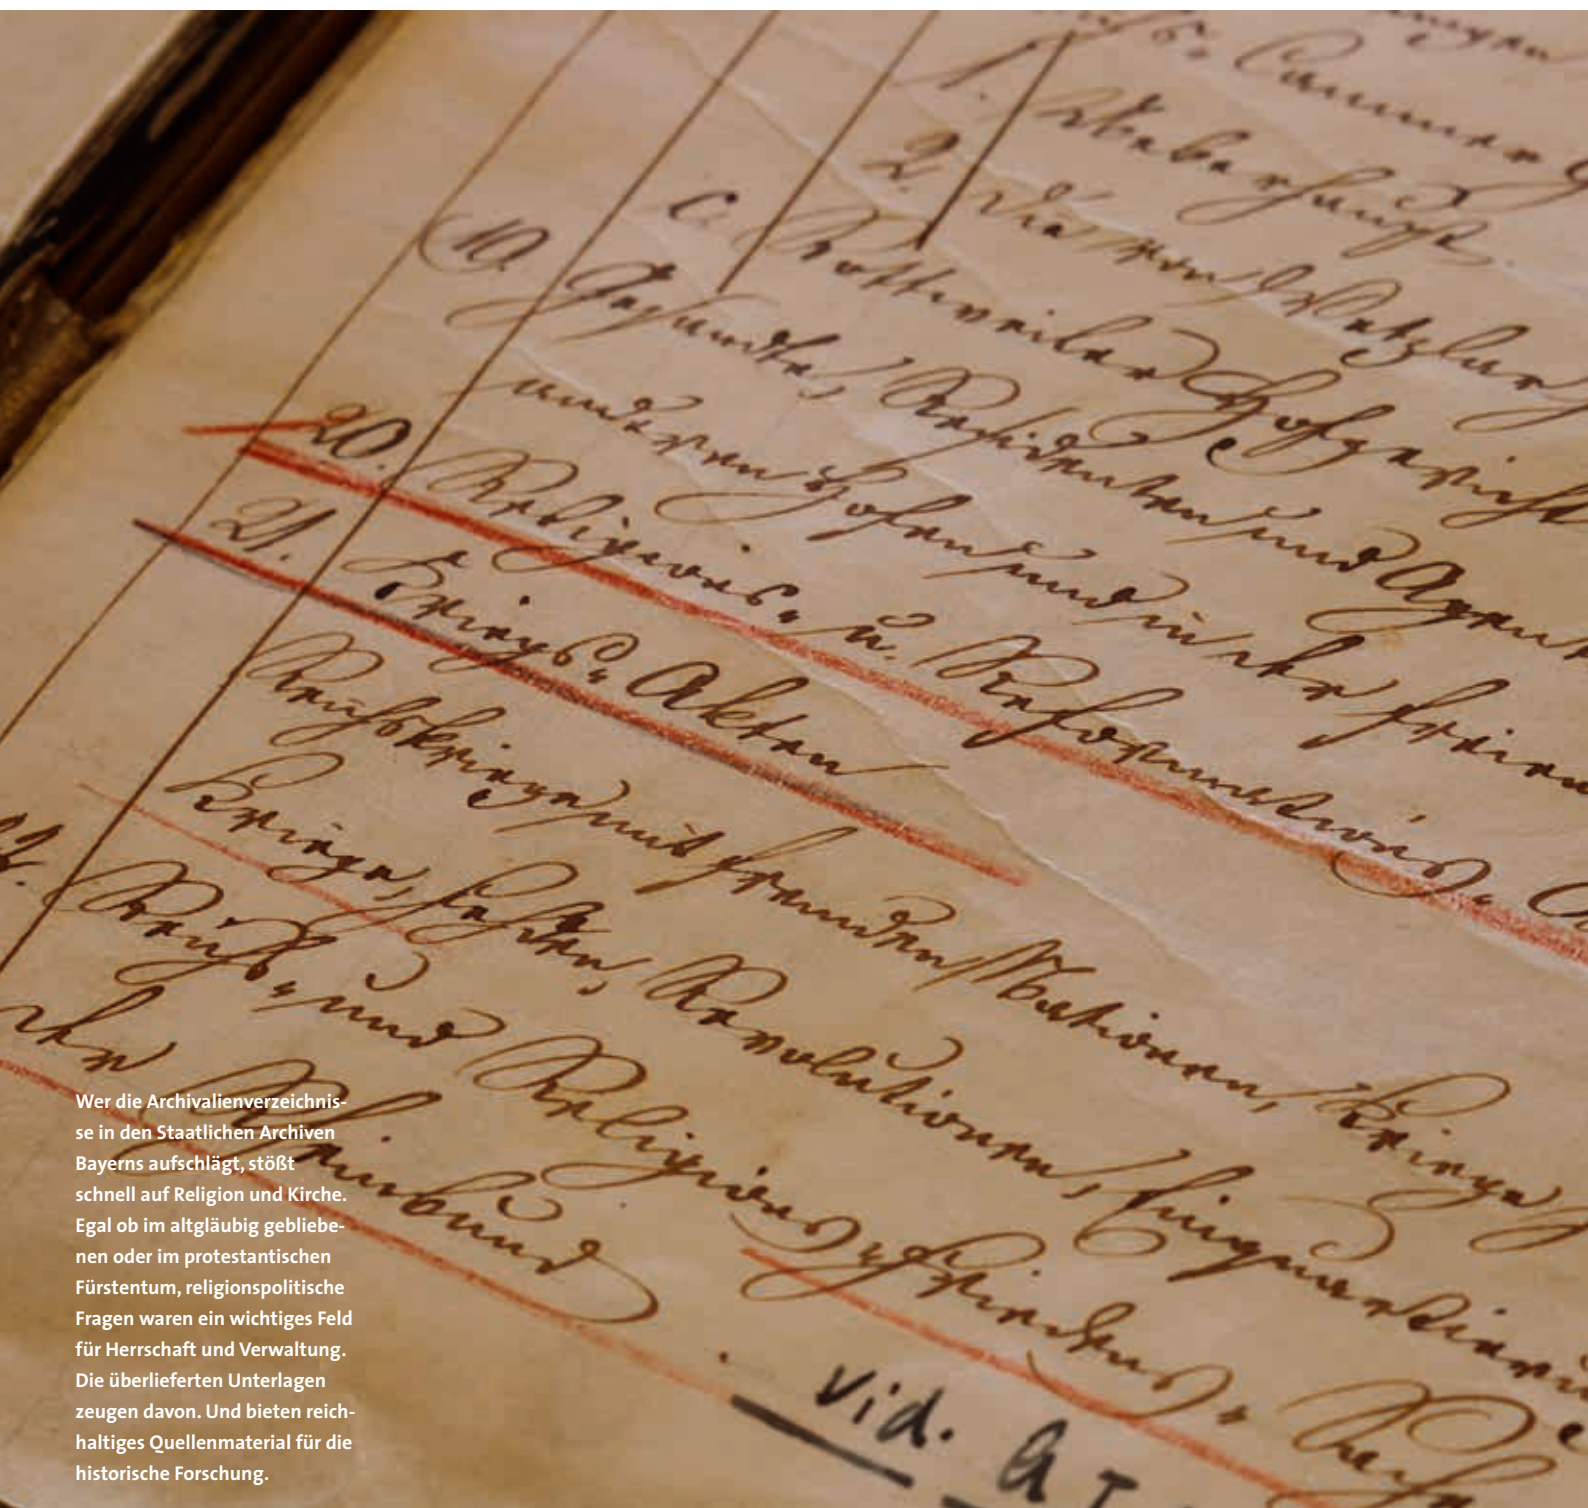 Cammer
1. Ueberhaupt.
2. Die von Wetzlar
c. Rottweiler Hofgericht
19. Gesandte, Residenten und Agenten
andern Höfen und in ihr
20. Religions- u. Reformations-
21. Kriegs-Akten
Reichskriege mit fremden Nationen, Kriege
Kriege, Fehden, Revolutionen,
22. Reichs- und Religions-Friedens-
Rheinbund
vid.
Wer die Archivalienverzeichnis-
se in den Staatlichen Archiven
Bayerns aufschlägt, stößt
schnell auf Religion und Kirche.
Egal ob im altgläubig gebliebe-
nen oder im protestantischen
Fürstentum, religionspolitische
Fragen waren ein wichtiges Feld
für Herrschaft und Verwaltung.
Die überlieferten Unterlagen
zeugen davon. Und bieten reich-
haltiges Quellenmaterial für die
historische Forschung.